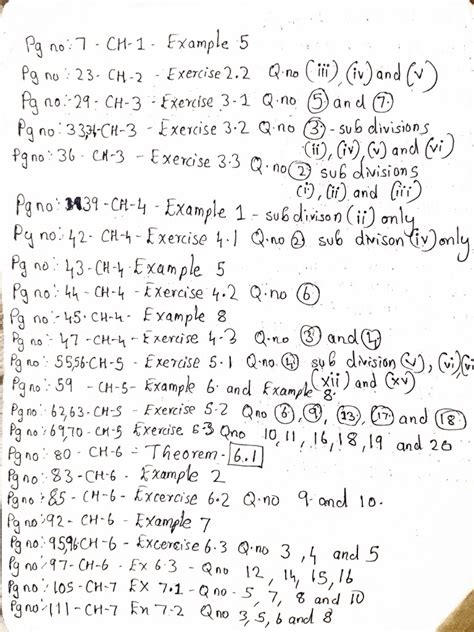 Pg no: 7 - CH-1 - Example 5
Pg no: 23 - CH-2 - Exercise 2.2 Q.no (iii), (iv) and (v)
Pg no: 29 - CH-3 - Exercise 3.1 Q.no 5 and 7
Pg no: 33,34 - CH-3 - Exercise 3.2 Q.no 3 - sub divisions
(ii), (iv), (v) and (vi)
Pg no: 36 - CH-3 - Exercise 3.3 Q.no 2 sub divisions
(i), (ii) and (iii)
Pg no: 39 - CH-4 - Example 1 - sub divison (ii) only
Pg no: 42 - CH-4 - Exercise 4.1 Q.no 2 sub divison (iv) only
Pg no: 43 - CH-4 Example 5
Pg no: 44 - CH-4 - Exercise 4.2 Q.no 6
Pg no: 45 - CH-4 - Example 8
Pg no: 47 - CH-4 - Exercise 4.3 Q.no 3 and 4
Pg no: 55,56 - CH-5 - Exercise 5.1 Q.no. 4 sub division (v), (vi)
(xii) and (xv)
Pg no: 59 - CH-5 - Example 6 and Example 8
Pg no: 62,63 - CH-5 - Exercise 5.2 Q.no 6, 9, 13, 17 and 18
Pg no: 69,70 - CH-5 Exercise 5.3 Q.no 10, 11, 16, 18, 19 and 20
Pg no: 80 - CH-6 - Theorem - 6.1
Pg no: 83 - CH-6 - Example 2
Pg no: 85 - CH-6 - Excercise 6.2 Q.no 9 and 10.
Pg no: 92 - CH-6 - Example 7
Pg no: 95,96 CH-6 - Excercise 6.3 Q.no 3, 4 and 5
Pg no: 97 - CH-6 - Ex 6.3 - Q.no 12, 14, 15, 16
Pg no: 105 - CH-7 EX 7.1 - Q.no - 5, 7, 8 and 10
Pg no: 111 - CH-7 Ex 7.2 Q.no 3, 5, 6 and 8